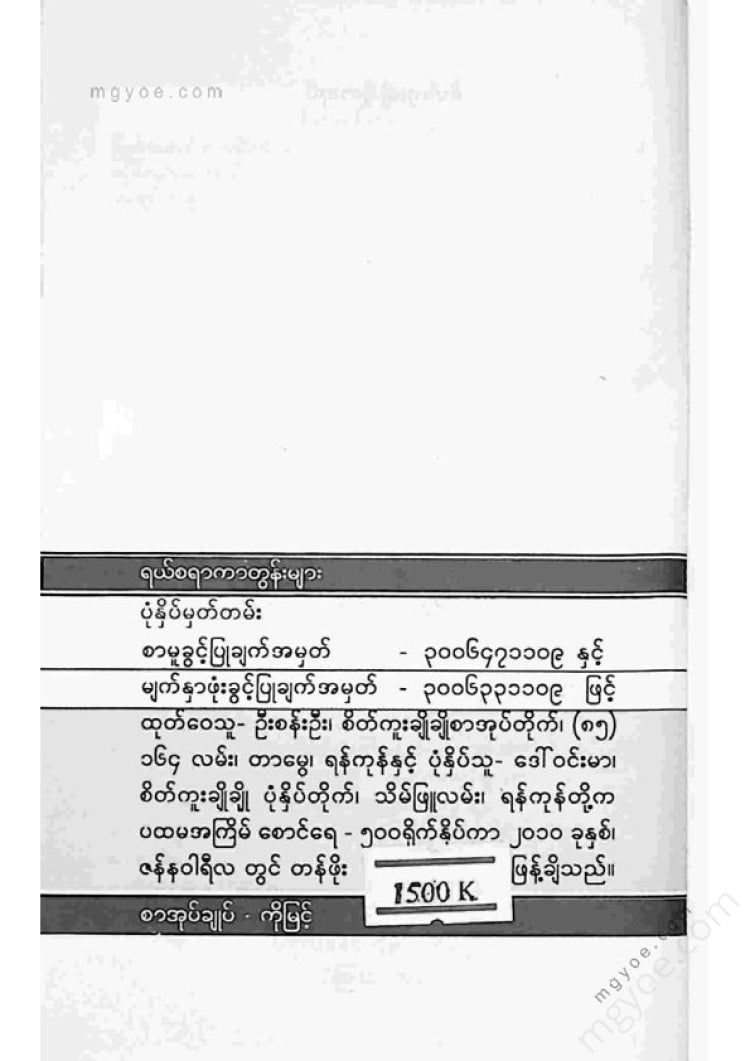 mgyoe.com
ရယ်စရာကာတွန်းများ
ပုံနှိပ်မှတ်တမ်း
စာမူခွင့်ပြုချက်အမှတ် - ၃၀၀၆၄၇၁၁၀၉ နှင့်
မျက်နှာဖုံးခွင့်ပြုချက်အမှတ် - ၃၀၀၆၃၃၁၁၀၉ ဖြင့်
ထုတ်ဝေသူ- ဦးစန်းဦး၊ စိတ်ကူးချိုချိုစာအုပ်တိုက်၊ (၈၅)
၁၆၄ လမ်း၊ တာမွေ၊ ရန်ကုန်နှင့် ပုံနှိပ်သူ- ဒေါ်ဝင်းမာ၊
စိတ်ကူးချိုချို ပုံနှိပ်တိုက်၊ သိမ်ဖြူလမ်း၊ ရန်ကုန်တို့က
ပထမအကြိမ် စောင်ရေ - ၅၀၀ရိုက်နှိပ်ကာ ၂၀၁၀ ခုနှစ်၊
ဇန်နဝါရီလ တွင် တန်ဖိုး 1500 K ဖြန့်ချိသည်။
စာအုပ်ချုပ် - ကိုမြင့်
mgyoe.com
mgyoe.com